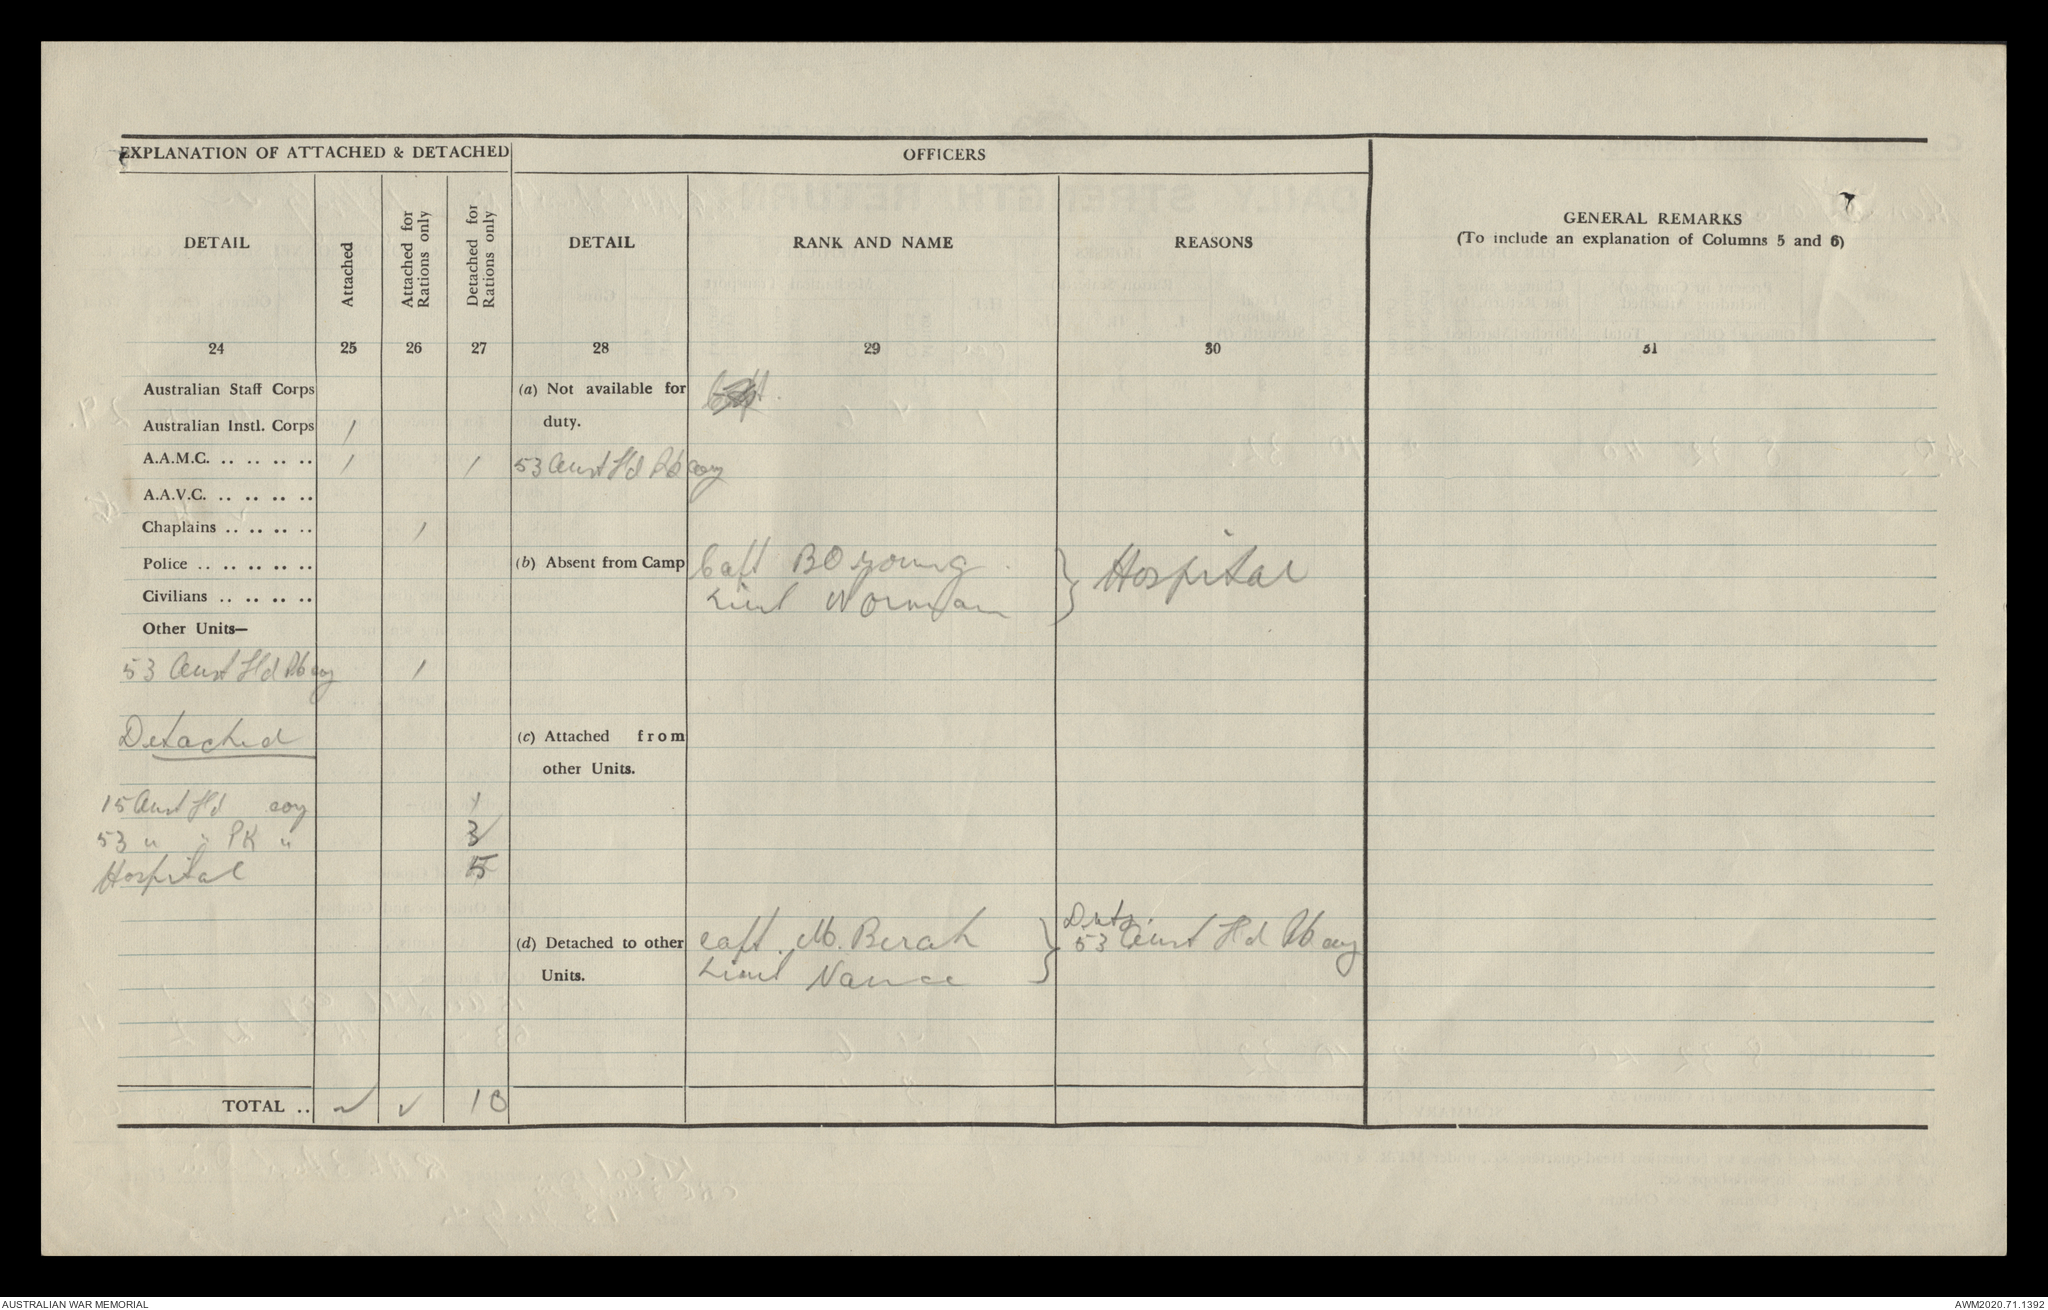 EXPLANATION OF ATTACHED & DETACHED
OFFICERS
GENERAL REMARKS
(To include an explanation of Columns 5 and 6)
DETAIL
Attached
Attached for Rations only
Detached for Rations only
DETAIL
RANK AND NAME
REASONS
24 25 26 27 28 29 30 31
Australian Staff Corps
(a) Not available for duty.
Capt.
Australian Instl. Corps 1
A.A.M.C. .. .. .. .. 1 1
53 Aust Fd Pk coy
A.A.V.C. .. .. .. ..
Chaplains .. .. .. .. 1
Police .. .. .. .. ..
(b) Absent from Camp
Capt BO Young
Lieut Norman
} Hospital
Civilians .. .. .. ..
Other Units—
53 Aust Fd Pk coy 1
Detached
(c) Attached from other Units.
15 Aust Fd coy 1
53 " " PK " 3
Hospital 5
(d) Detached to other Units.
Capt. M. Berah
Lieut Nance
} Duty.
53 Aust Fd Pk coy
TOTAL .. ✓ ✓ 10
AUSTRALIAN WAR MEMORIAL
AWM2020.71.1392